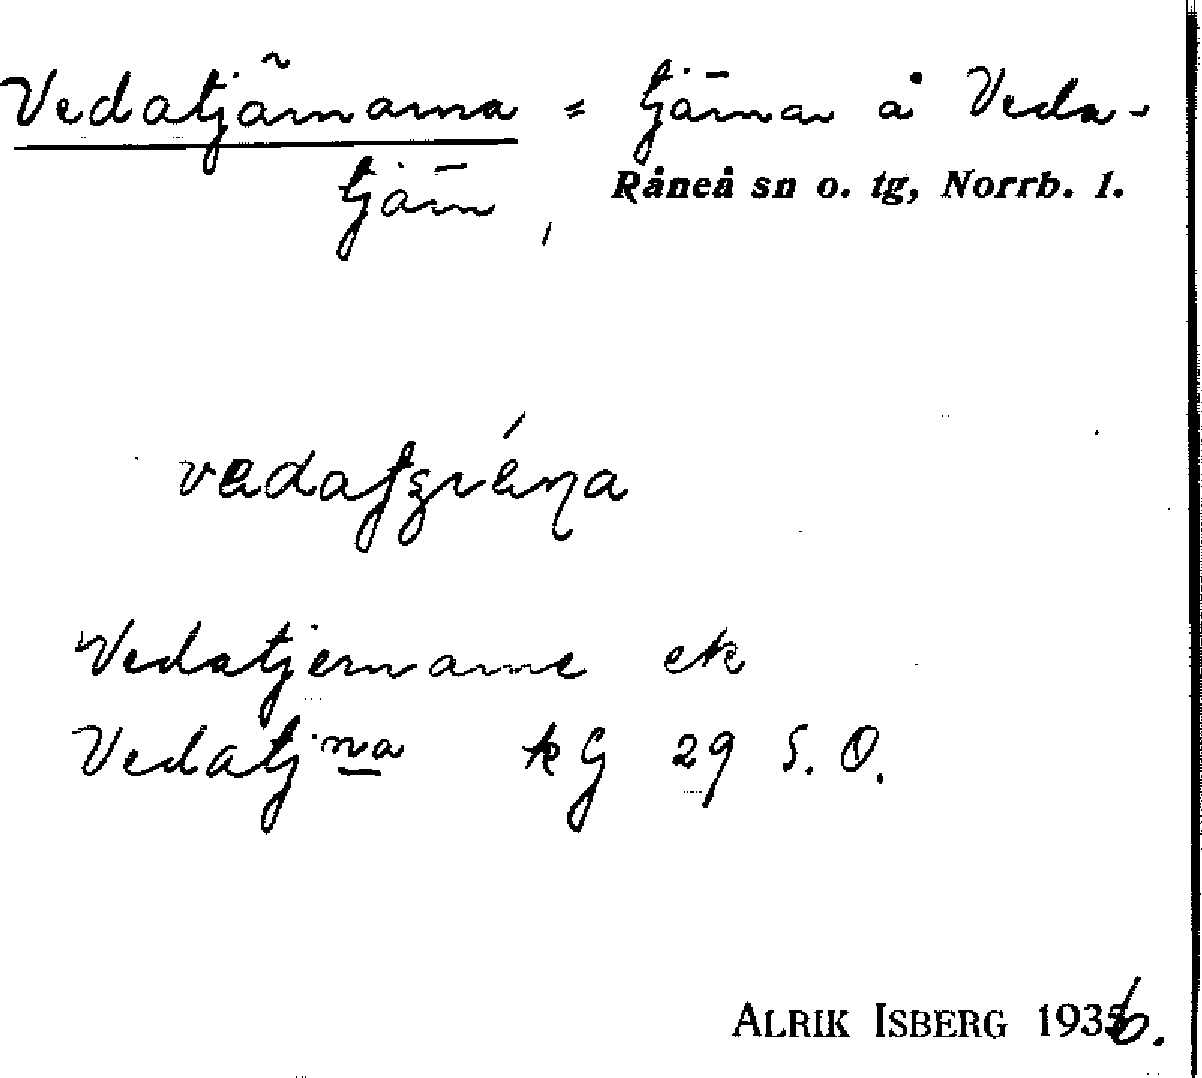 Vedatjärnarna = tjärnar å Veda-
tjärn,
Råneå sn o. tg, Norrb. l.
Vedatjernarne ek
Vedatjna kG 29 S.O.
ALRIK ISBERG 1936.